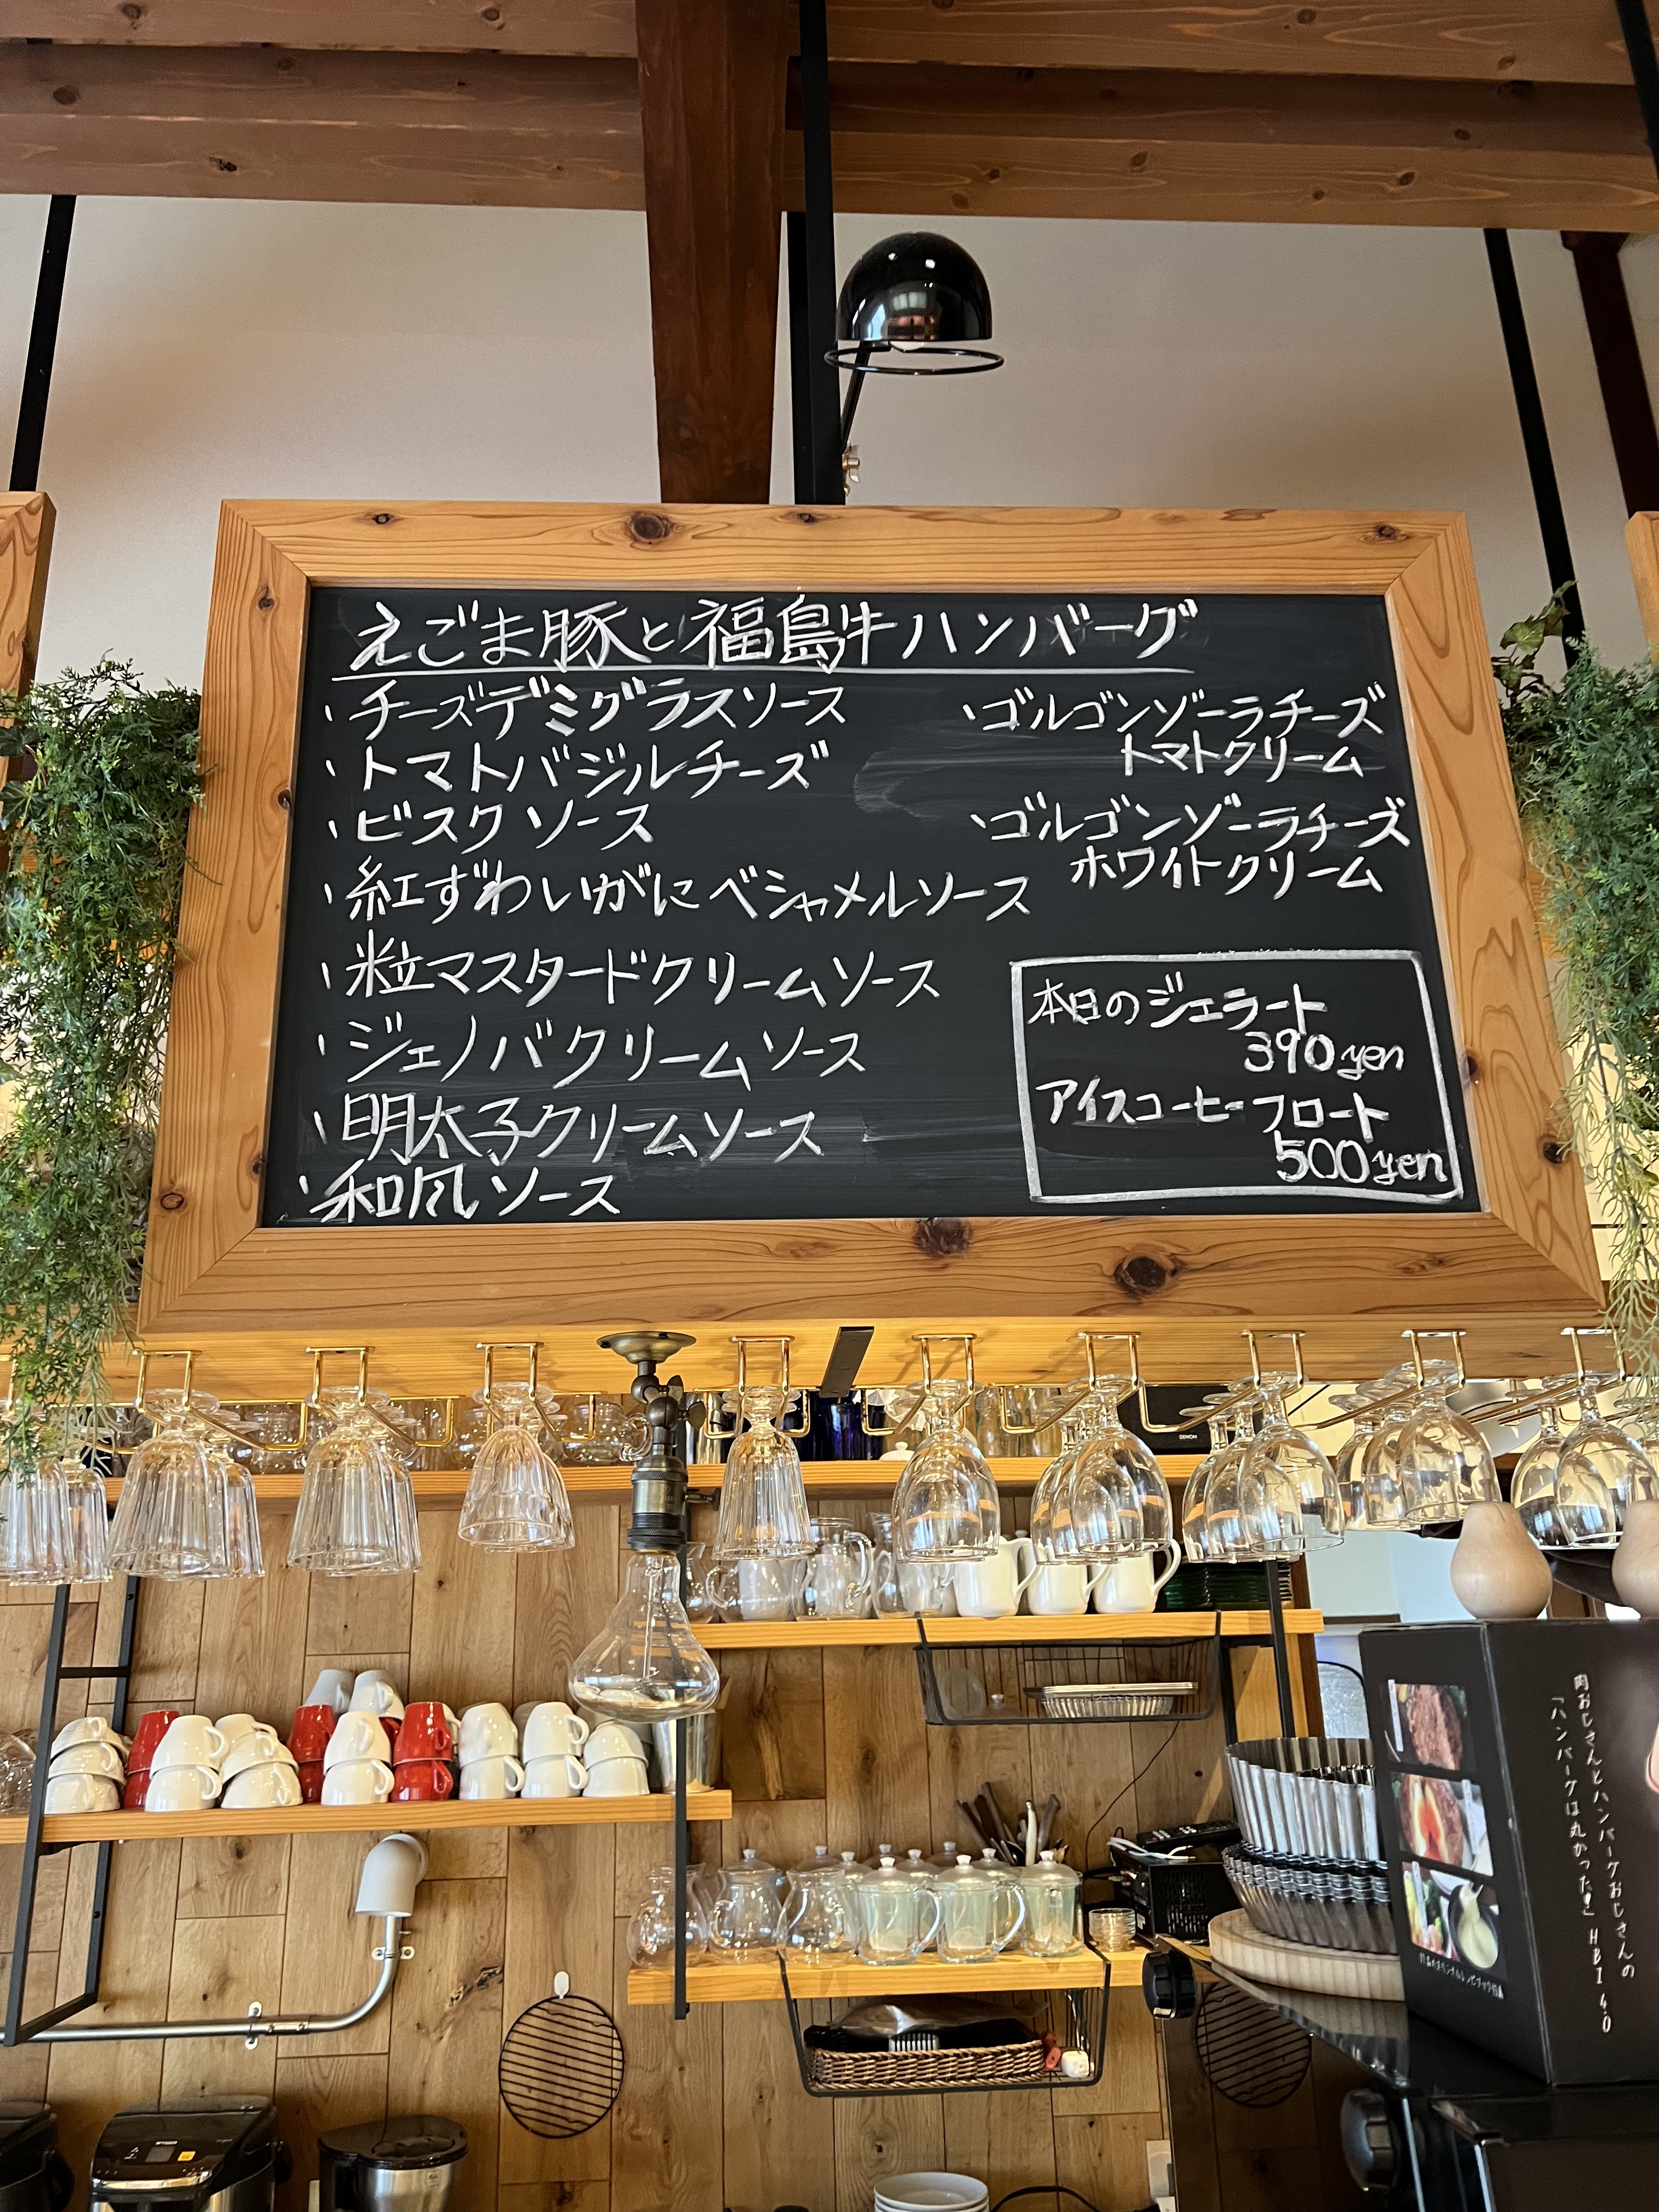 えごま豚と福島牛ハンバーグ
・チーズデミグラスソース
・トマトバジルチーズ
・ビスクソース
・紅ずわいがにベシャメルソース
・粒マスタードクリームソース
・ジェノバクリームソース
・明太子クリームソース
・和風ソース
・ゴルゴンゾーラチーズ
トマトクリーム
・ゴルゴンゾーラチーズ
ホワイトクリーム
本日のジェラート
390yen
アイスコーヒーフロート
500yen
DENON
肉おじさんとハンバーグおじさんの
「ハンバーグは丸かった!」HBI 4.0